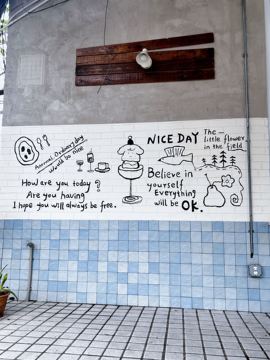 Normal Ordinary day
would be nice
How are you today?
Are you having
I hope you will always be free.
NICE DAY
Believe in
yourself
Everything
will be OK.
The —
little flower
in the field